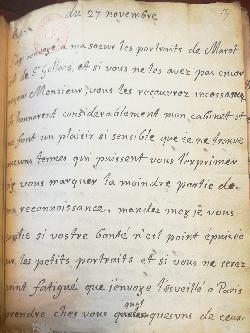 du 27 novembre
envoyé a ma soeur les portraits de Marot
de St Gellais, et si vous ne les avez pas encor
Monsieur, vous les recevrez incessament
honnorent considerablement mon cabinet et
me font un plaisir si sensible que je ne trouve
aucuns termes qui puissent vous l'exprimer
vous marquer la moindre partie de
ma reconnoissance. mandez moy je vous
si vostre bonté n'est point épuisée
sur les petits portraits et si vous ne serez
point fatigué que j'envoye l'esveillé a Paris
prendre chez vous quelquesuns de ceux